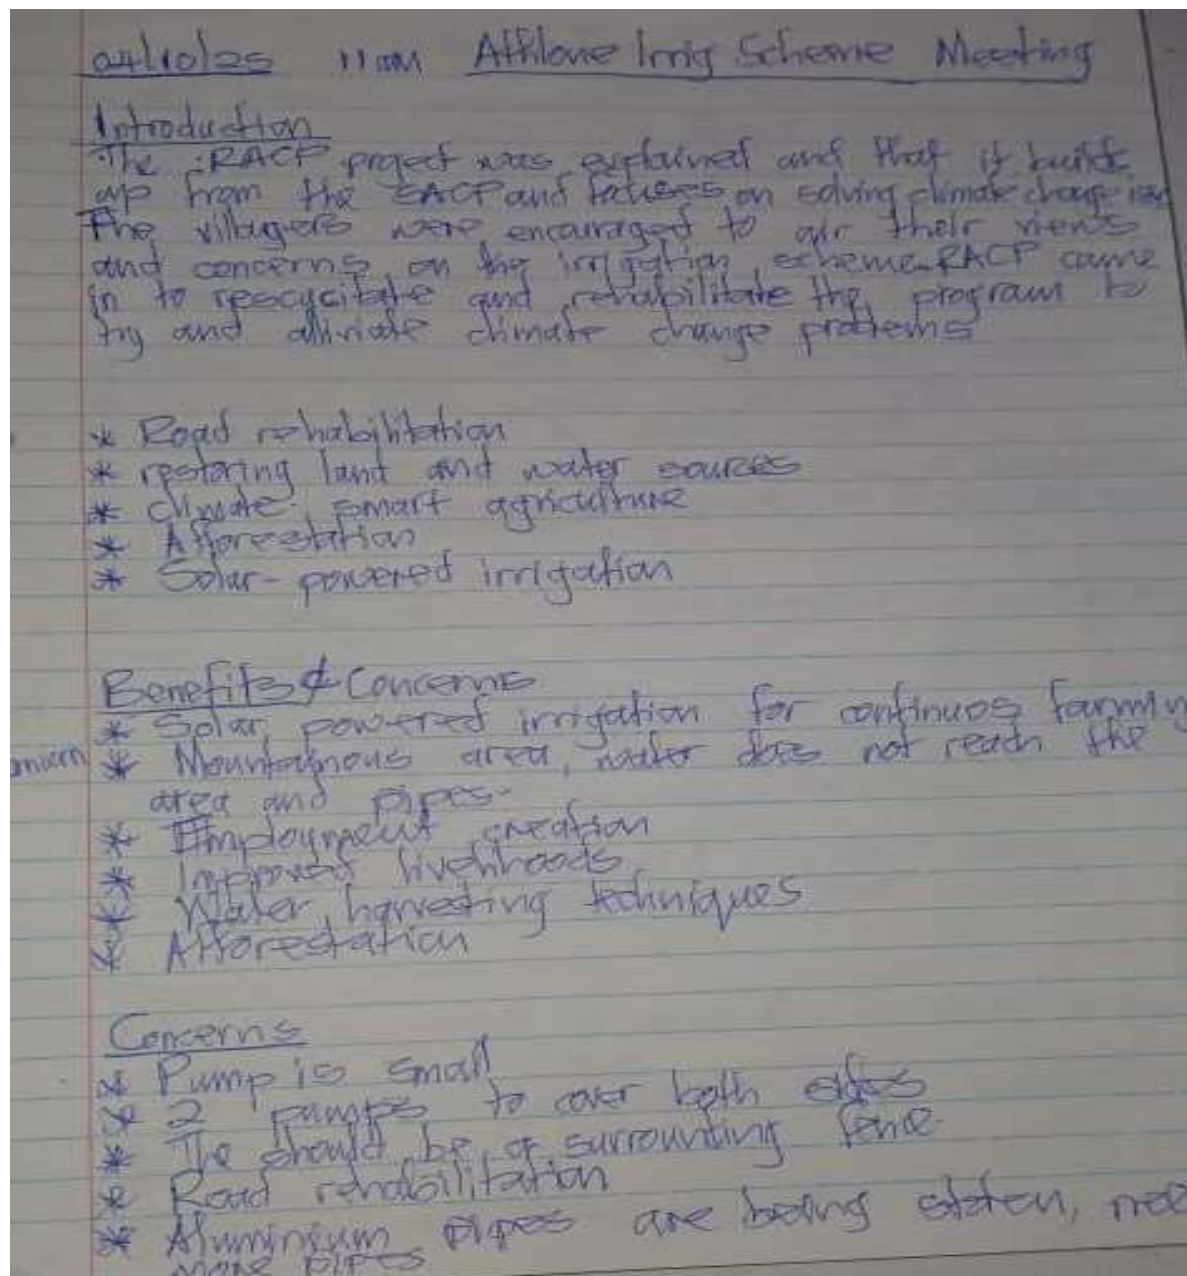 04/10/25 11am Athlone Irrig Scheme Meeting
Introduction
The RACP project was explained and that it builds
up from the EACP and focuses on solving climate change
The villagers were encouraged to air their views
and concerns on the irrigation scheme. RACP came
in to rescucitate and rehabilitate the program to
try and alliviate climate change problems
* Road rehabilitation
* restoring land and water sources
* climate smart agriculture
* Afforestation
* Solar-powered irrigation
Benefits & Concerns
* Solar powered irrigation for continuos farming
* Mountainous area, water does not reach the
area and pipes-
* Employment creation
* Improved livelihoods
* Water harvesting techniques
* Afforestation
Concerns
* Pump is small
* 2 pumps to cover both sides
* The should be a surrounding fence.
* Road rehabilitation
* Aluminium pipes are being stolen, nee
more pipes